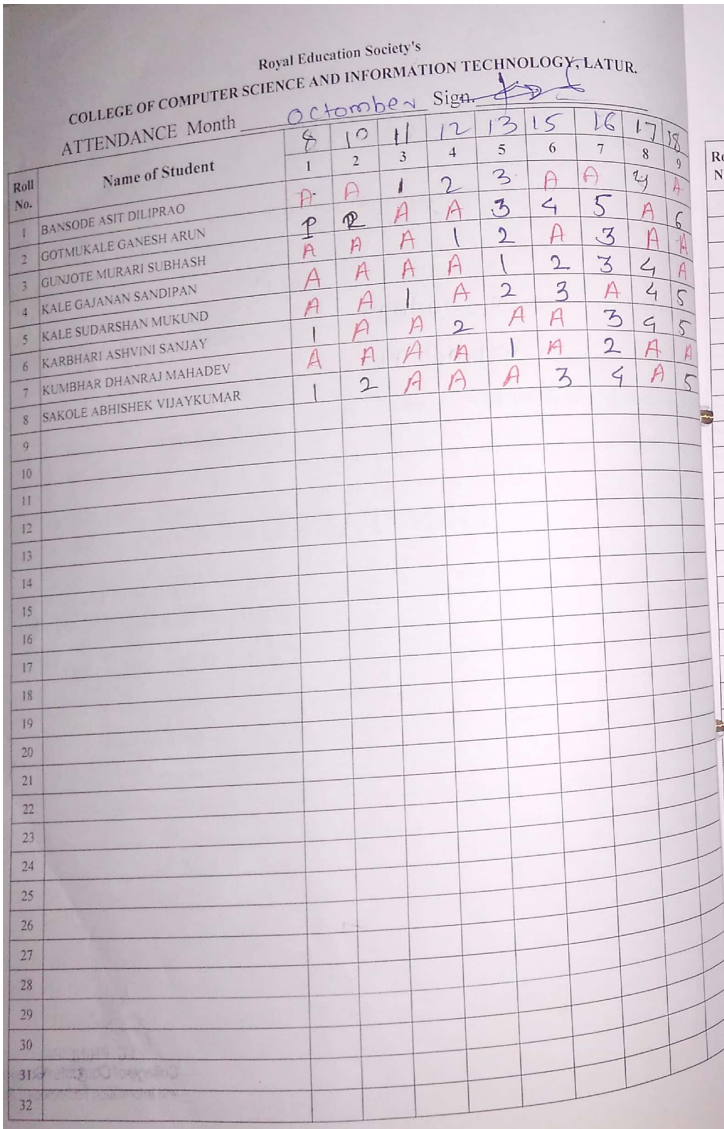 Royal Education Society's
COLLEGE OF COMPUTER SCIENCE AND INFORMATION TECHNOLOGY, LATUR.
ATTENDANCE Month Octomber Sign.
Roll No. Name of Student 8 10 11 12 13 15 16 17 18
1 2 3 4 5 6 7 8 9
1 BANSODE ASIT DILIPRAO A A 1 2 3 A A 4 A
2 GOTMUKALE GANESH ARUN A A 3 4 5 A 6
3 GUNJOTE MURARI SUBHASH A A A 1 2 A 3 A A
4 KALE GAJANAN SANDIPAN A A A A 1 2 3 4 A
5 KALE SUDARSHAN MUKUND A A 1 A 2 3 A 4 5
6 KARBHARI ASHVINI SANJAY 1 A A 2 A A 3 4 5
7 KUMBHAR DHANRAJ MAHADEV A A A A 1 A 2 A A
8 SAKOLE ABHISHEK VIJAYKUMAR 1 2 A A A 3 4 A 5
9
10
11
12
13
14
15
16
17
18
19
20
21
22
23
24
25
26
27
28
29
30
31
32